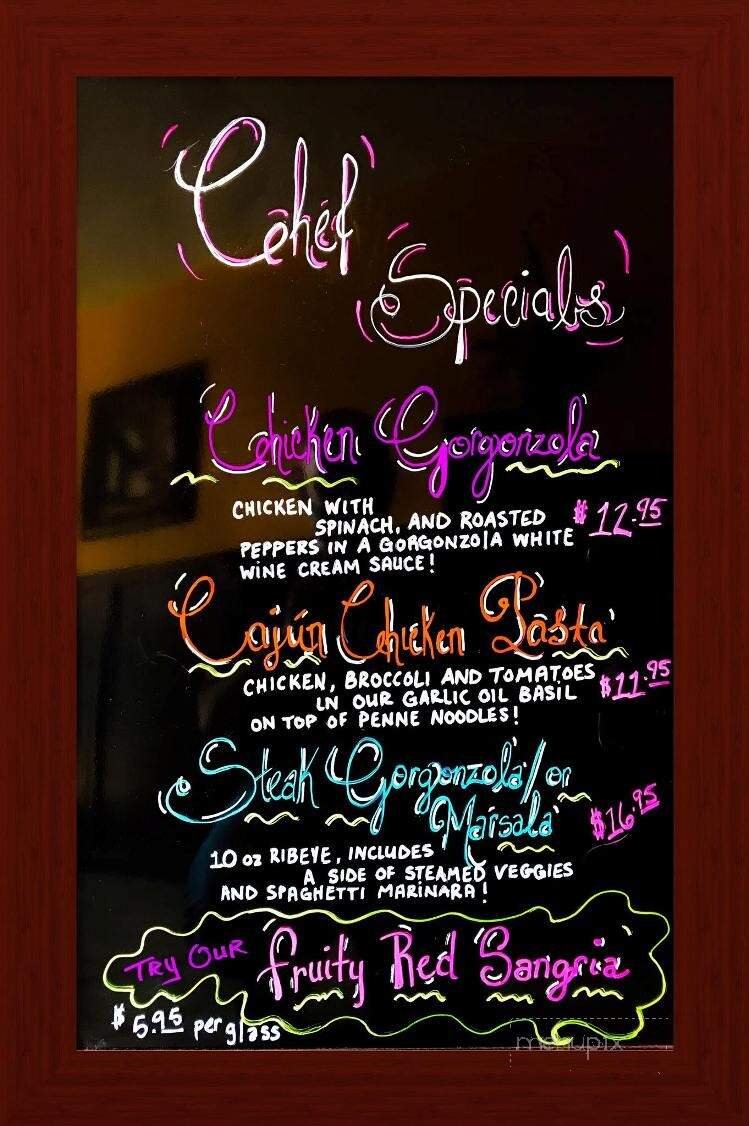 Chef
Specials
Chicken Gorgonzola
CHICKEN WITH
SPINACH, AND ROASTED
PEPPERS IN A GORGONZOLA WHITE
WINE CREAM SAUCE!
$12.95
Cajun Chicken Pasta
CHICKEN, BROCCOLI AND TOMATOES
IN OUR GARLIC OIL BASIL
ON TOP OF PENNE NOODLES!
$11.95
Steak Gorgonzola/or
Marsala
$16.95
10 oz RIBEYE, INCLUDES
A SIDE OF STEAMED VEGGIES
AND SPAGHETTI MARINARA!
TRY OUR fruity Red Sangria
$5.95 per glass
menupix